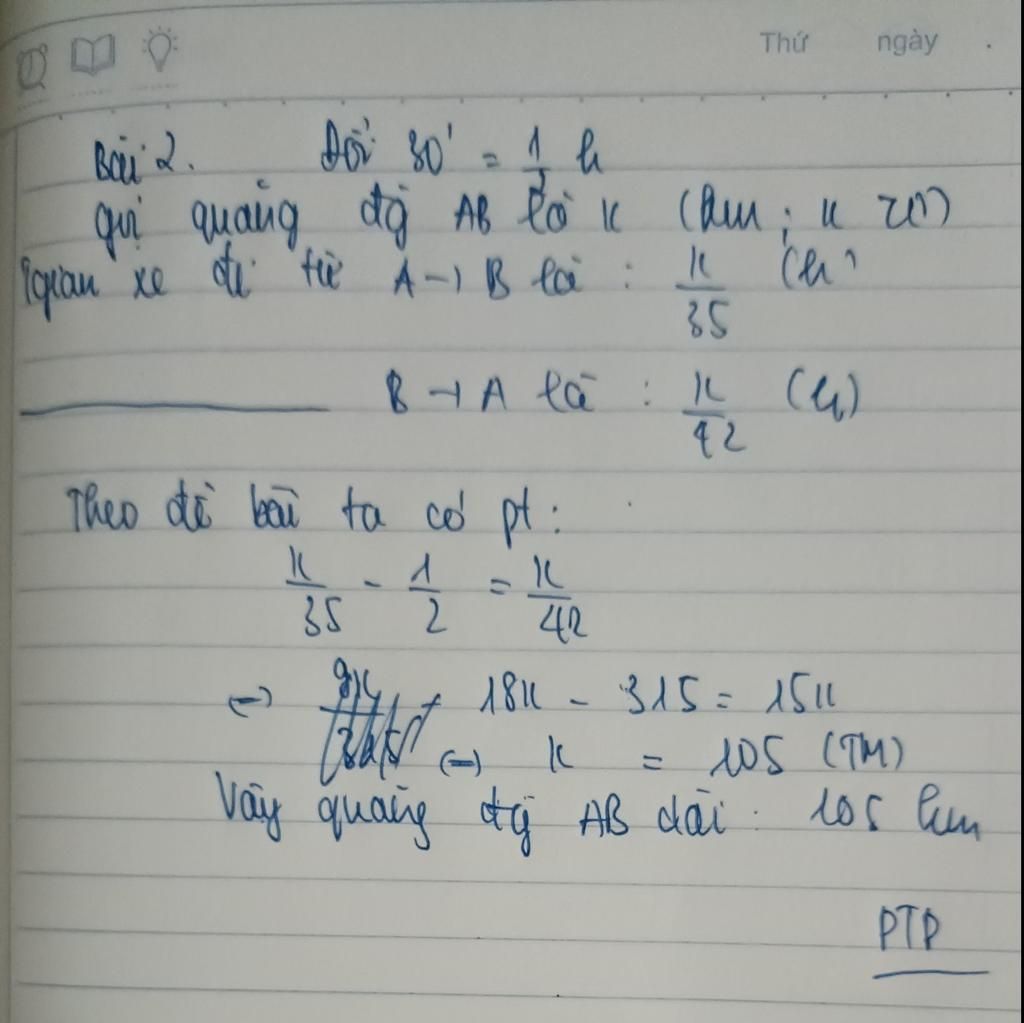 Thứ ngày .
Bài 2. Đổi 30' = 1/2 h
gọi quãng đg AB là x (km; x > 0)
tgian xe đi từ A → B là : x/35 (h)
B → A là : x/42 (h)
Theo đề bài ta có pt :
x/35 - 1/2 = x/42
⇔ 18x - 315 = 15x
⇔ x = 105 (TM)
Vậy quãng đg AB dài : 105 km
PTP